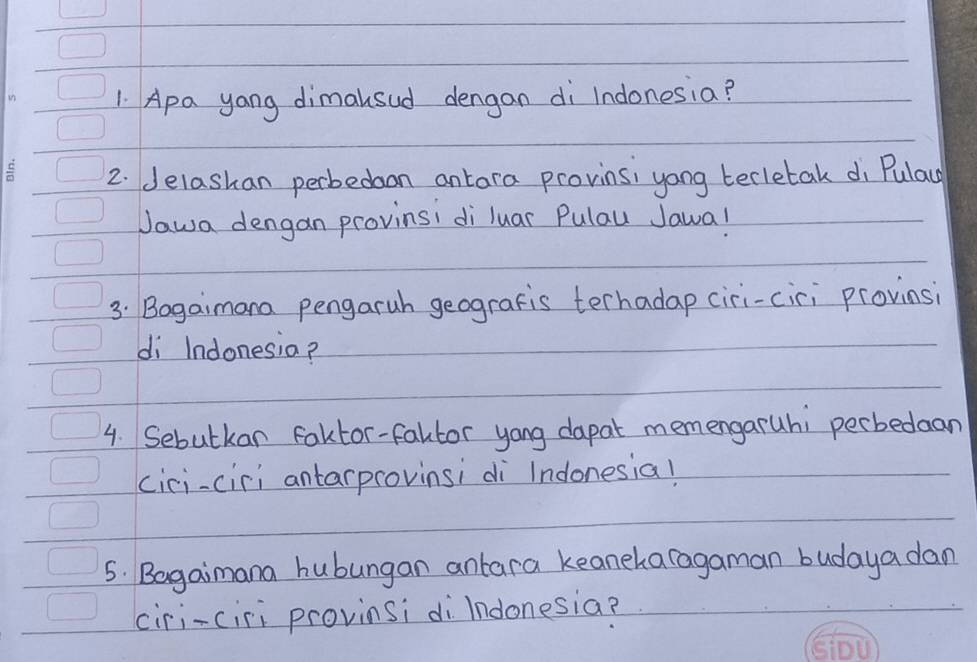 1. Apa yang dimaksud dengan di Indonesia?
2. Jelaskan perbedaan antara provinsi yang terletak di Pulau
Jawa dengan provinsi di luar Pulau Jawa!
3. Bagaimana pengaruh geografis terhadap ciri-ciri provinsi
di Indonesia?
4. Sebutkan faktor-faktor yang dapat memengaruhi perbedaan
ciri-ciri antarprovinsi di Indonesia!
5. Bagaimana hubungan antara keanekaragaman budaya dan
ciri-ciri provinsi di Indonesia?
SiDU